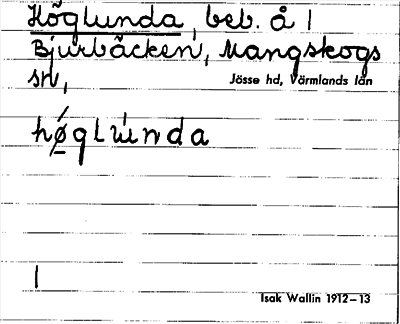 Höglunda, beb. å 1
Bjurbäcken, Mangskogs
sn,
Jösse hd, Värmlands län
hǿ̠glúnda
1
Isak Wallin 1912–13